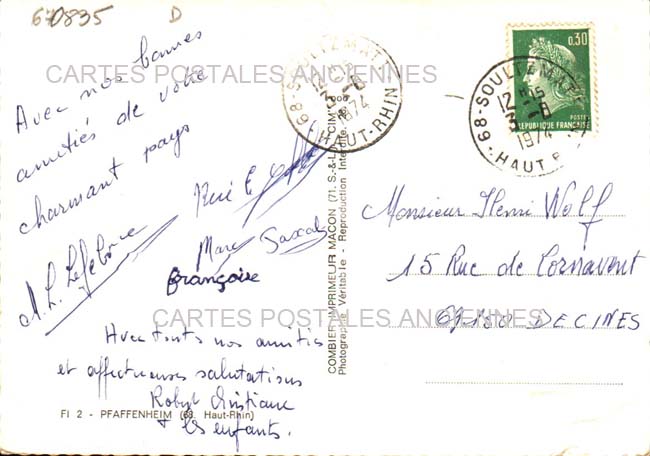 670835 D
CARTES POSTALES ANCIENNES
Avec nos bonnes
amitiés de votre
charmant pays
René E
M. L. Lefebvre
Marc Pascal
Françoise
Avec touts nos amitiés
et affectueuses salutations
Christiane
& les enfants.
FI 2 - PFAFFENHEIM (68. Haut-Rhin)
COMBIER IMPRIMEUR MACON (71. S.-&-L.) CIM
Photographie Véritable - Reproduction Interdite
68-SOULTZMATT
1974
HAUT-RHIN
0,30
POSTES
REPUBLIQUE FRANÇAISE
68-SOULTZMATT
12
1974
HAUT-R
Monsieur Henri Wolf
15 Rue de Cornavent
69150 DECINES
CARTES POSTALES ANCIENNES